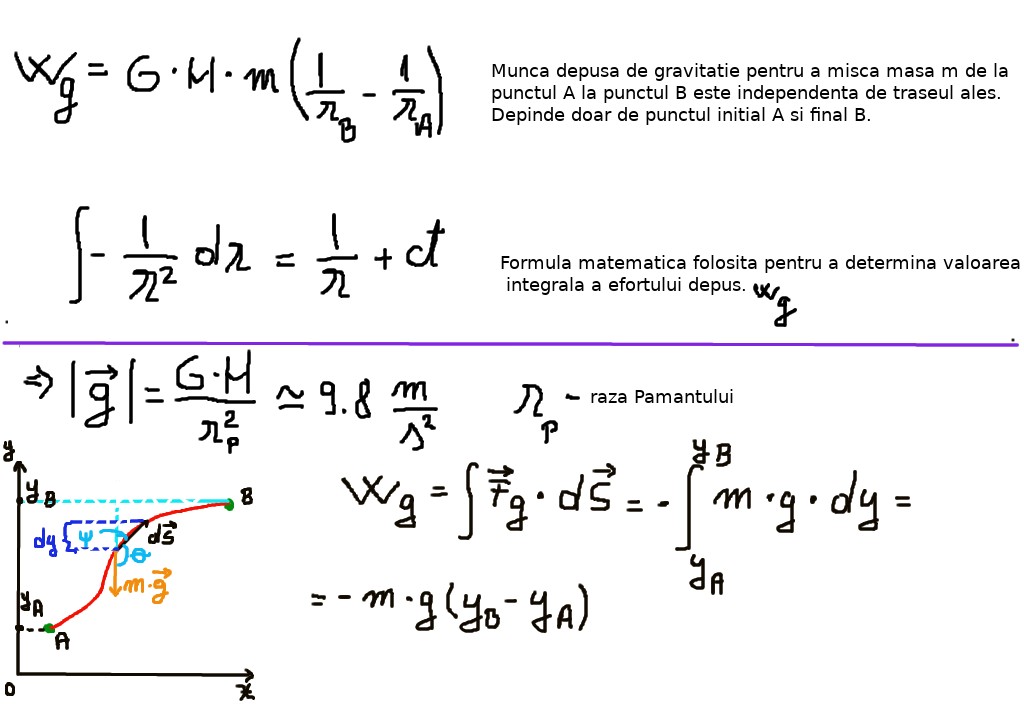 W_g = G · M · m (1/r_B - 1/r_A)
Munca depusa de gravitatie pentru a misca masa m de la
punctul A la punctul B este independenta de traseul ales.
Depinde doar de punctul initial A si final B.
∫ - 1/r² dr = 1/r + ct
Formula matematica folosita pentru a determina valoarea
integrala a efortului depus. W_g
⇒ |g⃗| = G·M/r_P² ≃ 9.8 m/s²
r_P - raza Pamantului
y
y_B
B
dy { ψ
ds⃗
θ
m·g⃗
y_A
A
0
x
W_g = ∫ F⃗_g · dS⃗ = - ∫_{y_A}^{y_B} m · g · dy =
= - m · g (y_B - y_A)